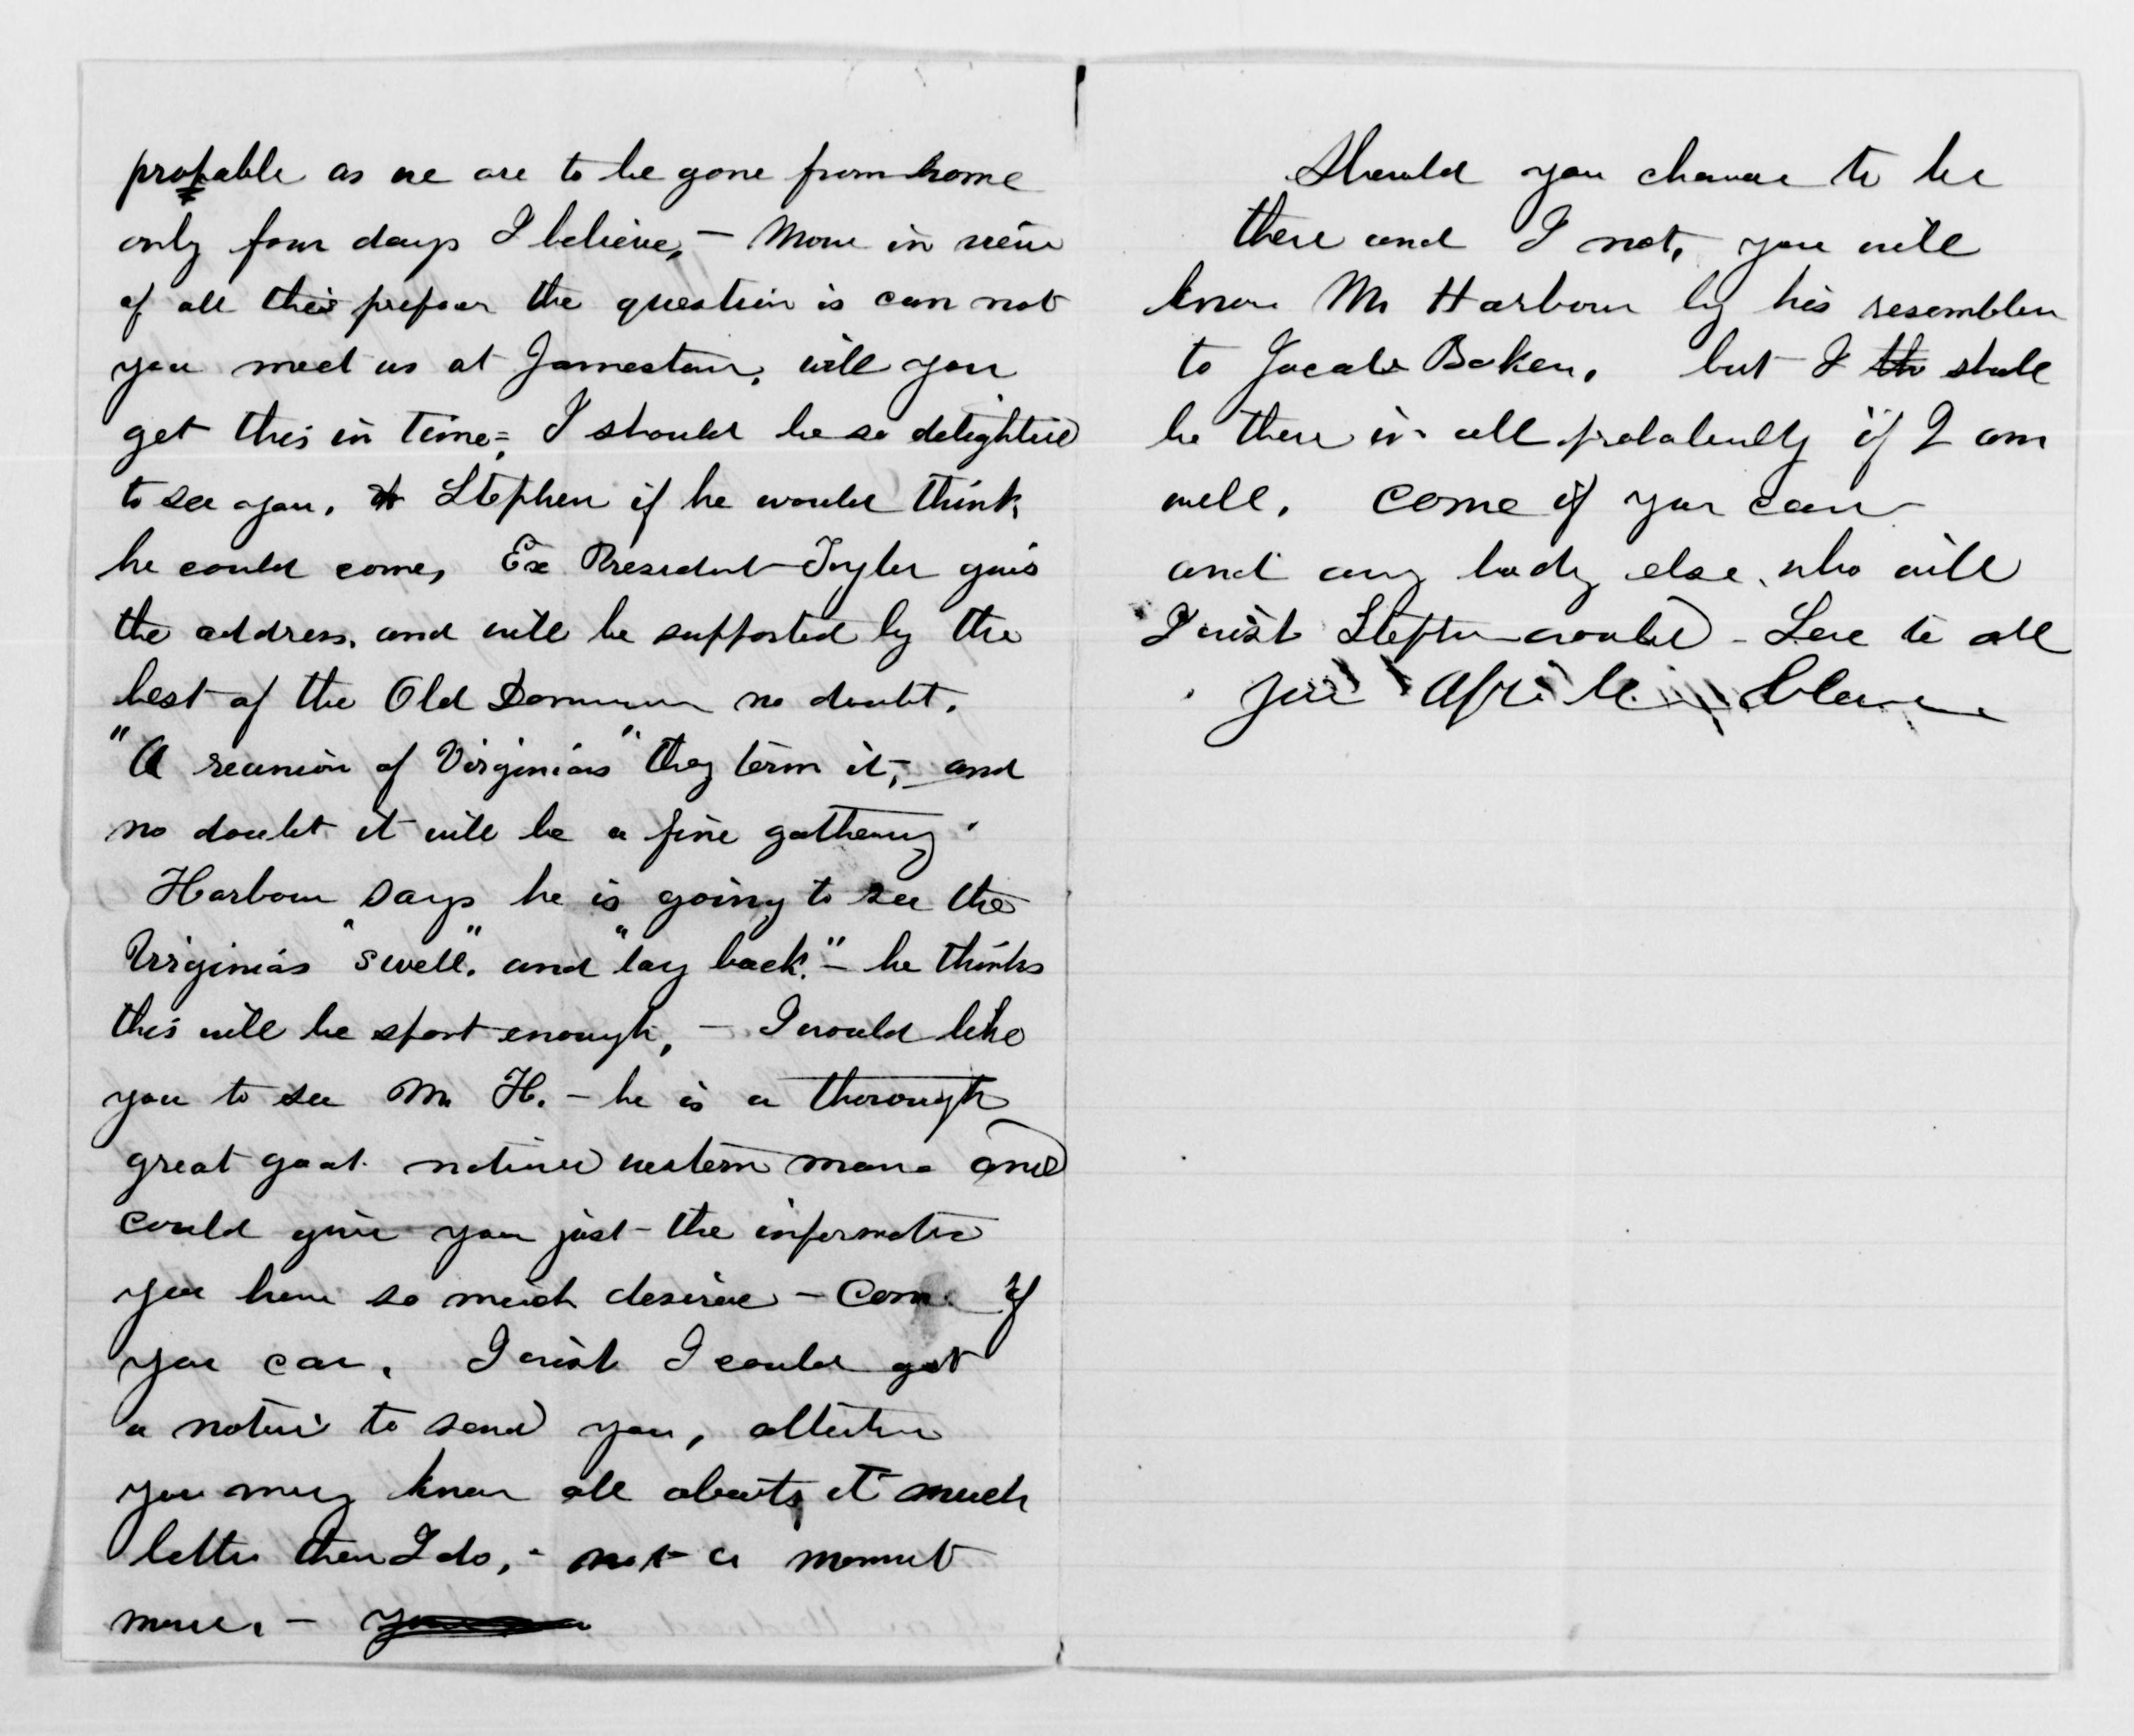 probable as we are to be gone from home
only four days I believe, - Now in view
of all this preface the question is can not
you meet us at Jamestown, will you
get this in time = I should be so delighted
to see you, Stephen if he would think
he could come, Ex President Tyler gives
the address, and will be supported by the
best of the Old Dominion no doubt.
"A reunion of Virginians" they term it, and
no doubt it will be a fine gathering.
Harbour says he is going to see the
Virginians "swell", and "lay back." - he thinks
this will be sport enough, - I would like
you to see Mr H. - he is a thorough
great goat natured western man and
could give you just the information
you have so much desired - Come if
you can. I wish I could get
a notice to send you,
you may know all about it much
better than I do, - not a moment
more. -
Should you chance to be
there and I not, you will
know Mr Harbour by his resemblen
to Jacob Baker, but I th shall
be there in all probability if I am
well. Come if you can
and any body else, who will
I wish Stephen would - Love to all
your Clara